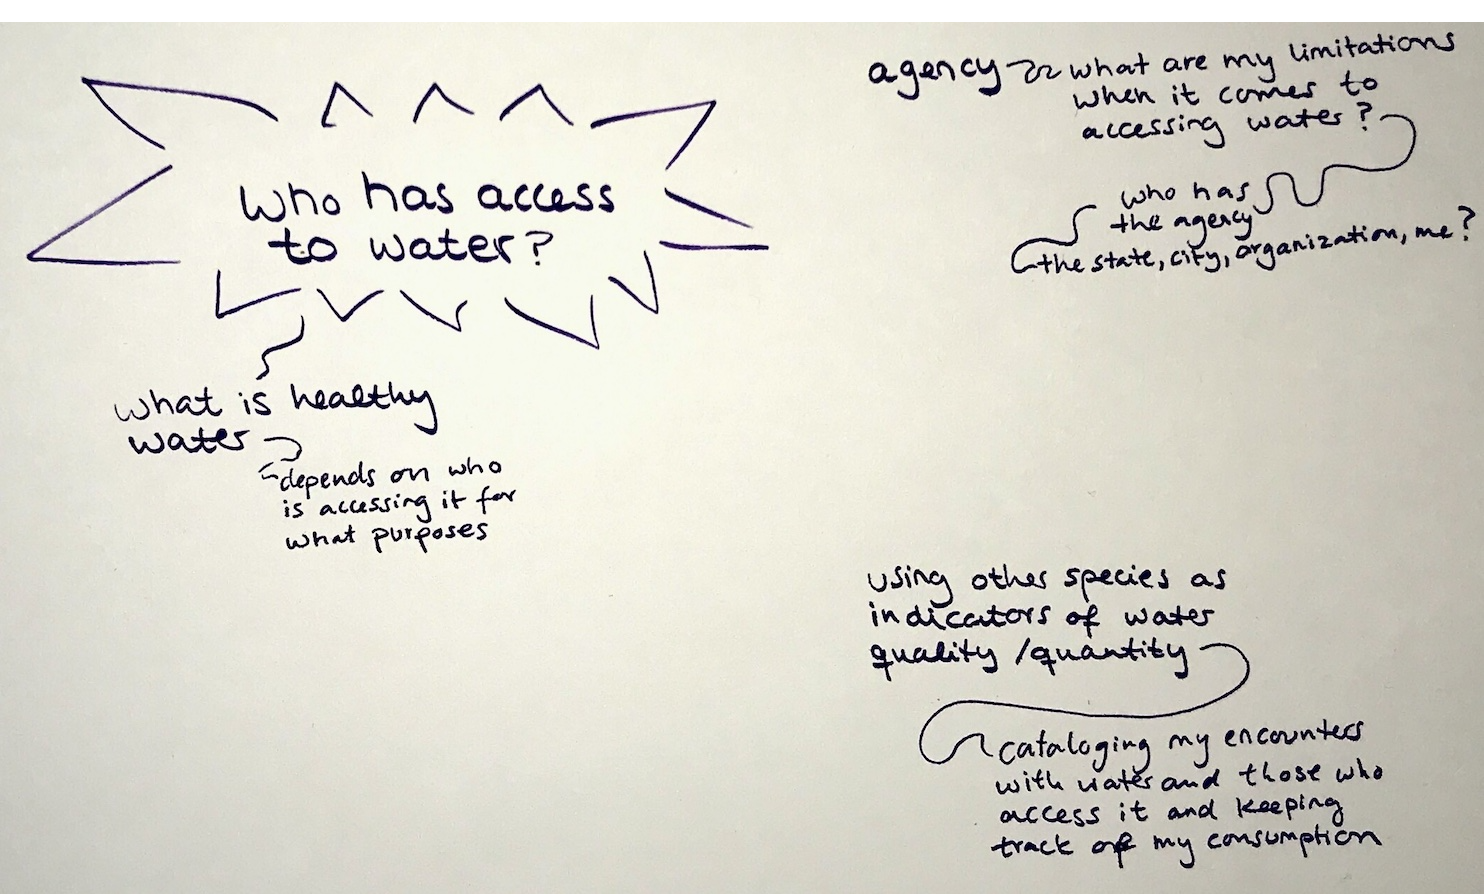 who has access
to water?
what is healthy
water
depends on who
is accessing it for
what purposes
agency
what are my limitations
when it comes to
accessing water?
who has
the agency
the state, city, organization, me?
using other species as
indicators of water
quality/quantity
cataloging my encounters
with water and those who
access it and keeping
track of my consumption